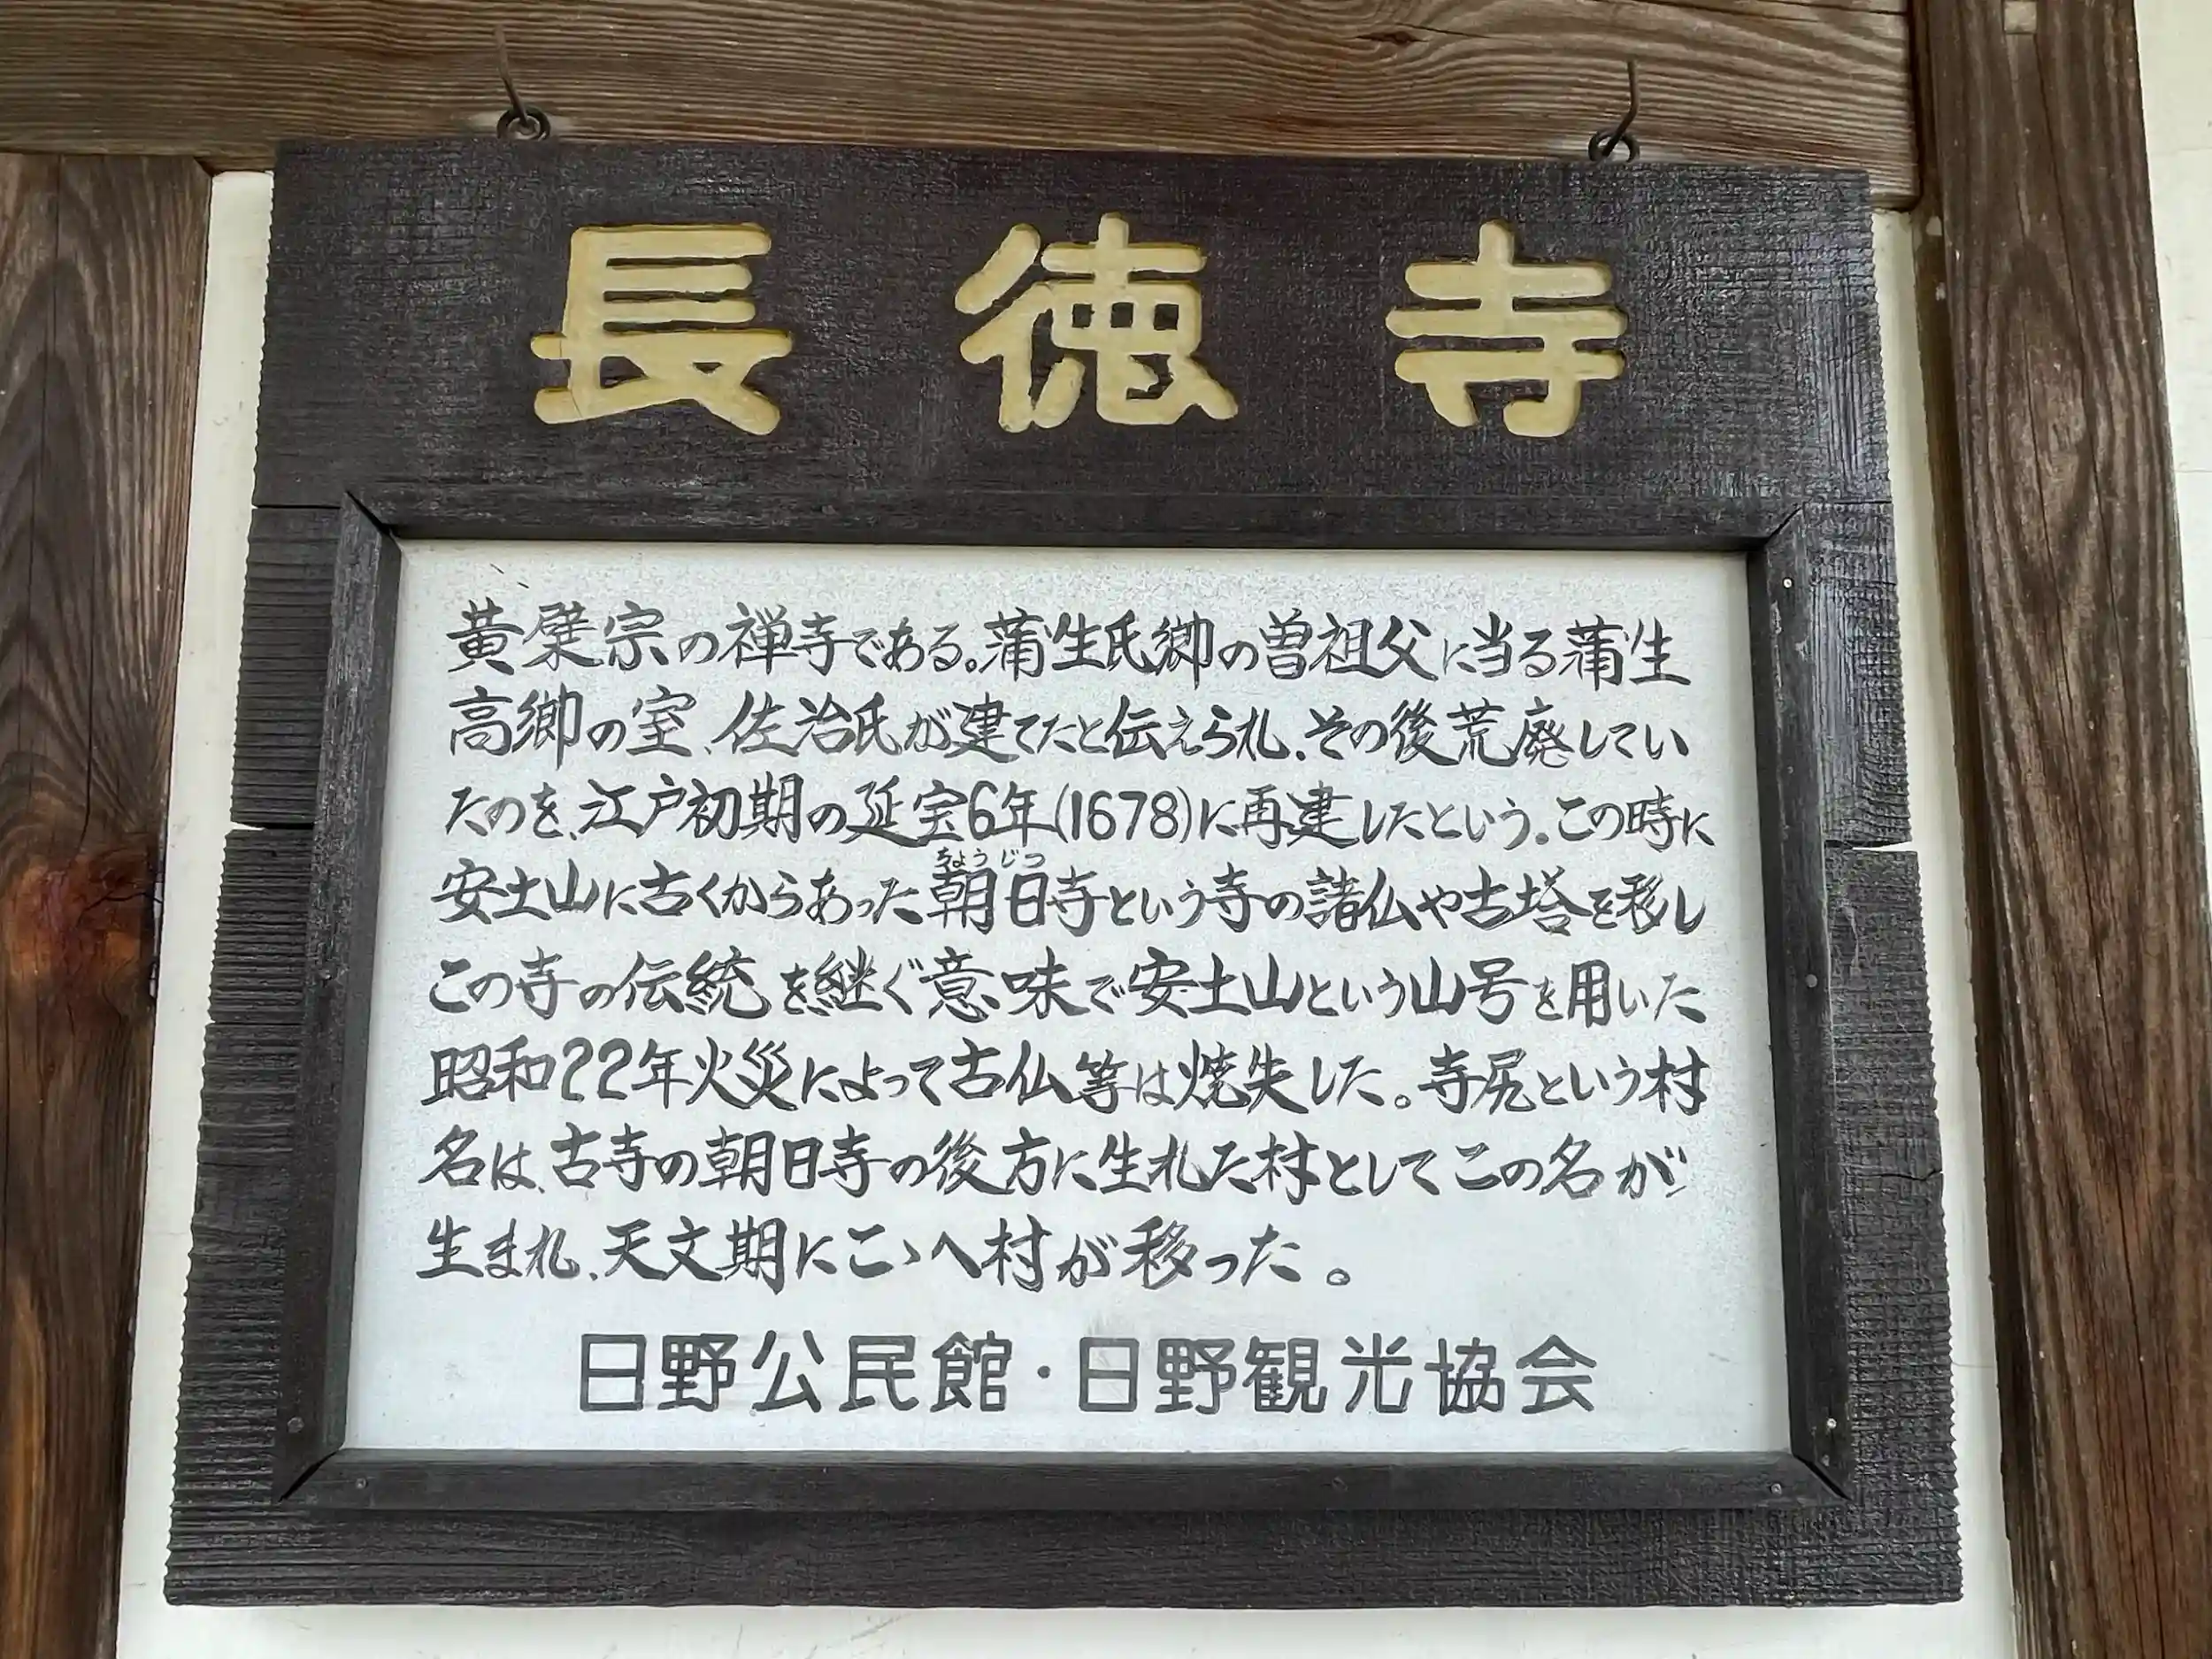 長徳寺
黄檗宗の禅寺である。蒲生氏郷の曽祖父に当る蒲生
高郷の室、佐治氏が建てたと伝えられ、その後荒廃してい
たのを、江戸初期の延宝6年(1678)に再建したという。この時に
安土山に古くからあった朝日寺という寺の諸仏や古塔を移し
ちょうじつ
この寺の伝統を継ぐ意味で安土山という山号を用いた
昭和22年火災によって古仏等は焼失した。寺尻という村
名は、古寺の朝日寺の後方に生れた村としてこの名が
生まれ、天文期にこゝへ村が移った。
日野公民館・日野観光協会